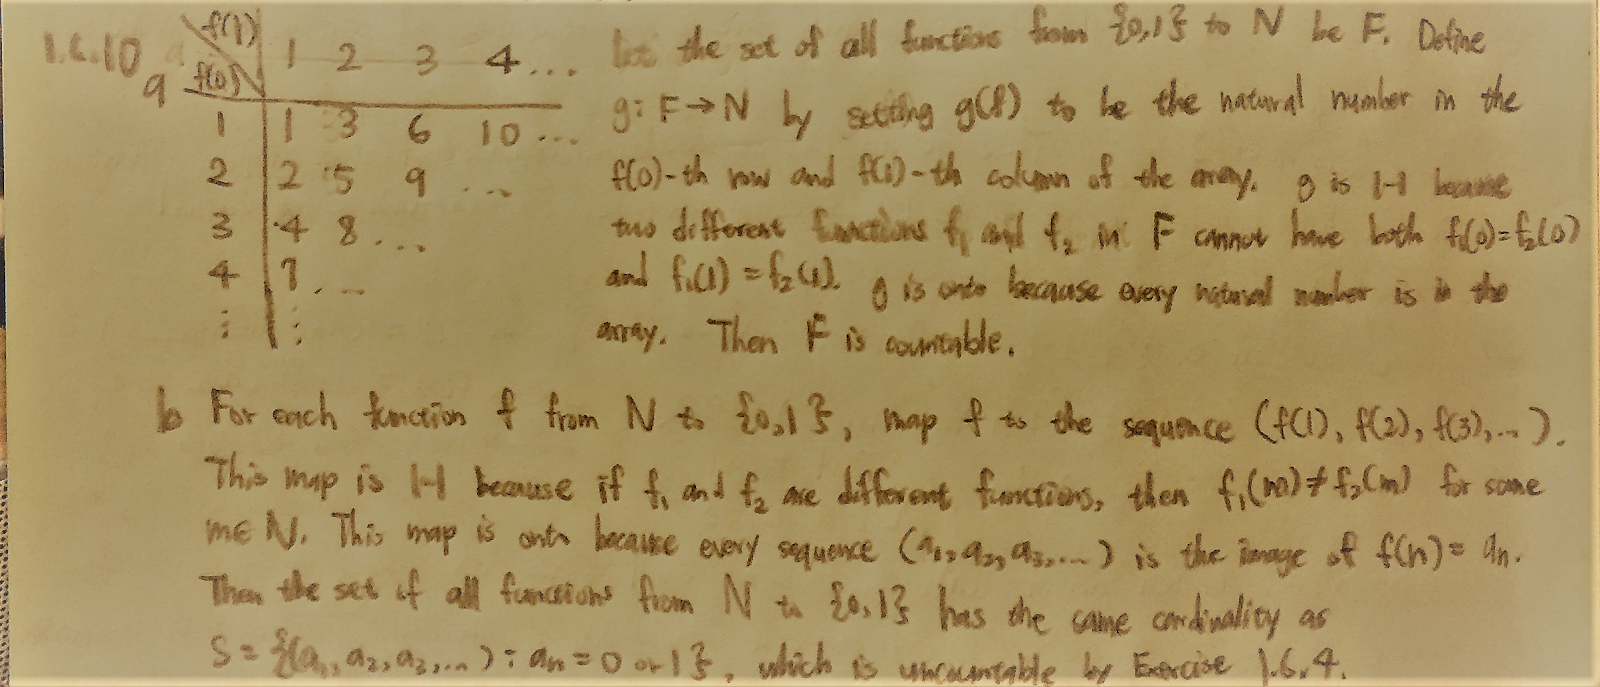 1.6.10
a
f(1)
f(0)
1 2 3 4 ...
1 1 3 6 10 ...
2 2 5 9 ...
3 4 8 ...
4 7 ...
⋮ ⋮
Let the set of all functions from {0,1} to N be F. Define
g: F→N by setting g(f) to be the natural number in the
f(0)-th row and f(1)-th column of the array. g is 1-1 because
two different functions f₁ and f₂ in F cannot have both f₁(0)=f₂(0)
and f₁(1)=f₂(1). g is onto because every natural number is in the
array. Then F is countable.
b For each function f from N to {0,1}, map f to the sequence (f(1), f(2), f(3),...).
This map is 1-1 because if f₁ and f₂ are different functions, then f₁(m)≠f₂(m) for some
m∈N. This map is onto because every sequence (a₁,a₂,a₃,...) is the image of f(n)=aₙ.
Then the set of all functions from N to {0,1} has the same cardinality as
S={(a₁,a₂,a₃,...): aₙ=0 or 1}, which is uncountable by Exercise 1.6.4.